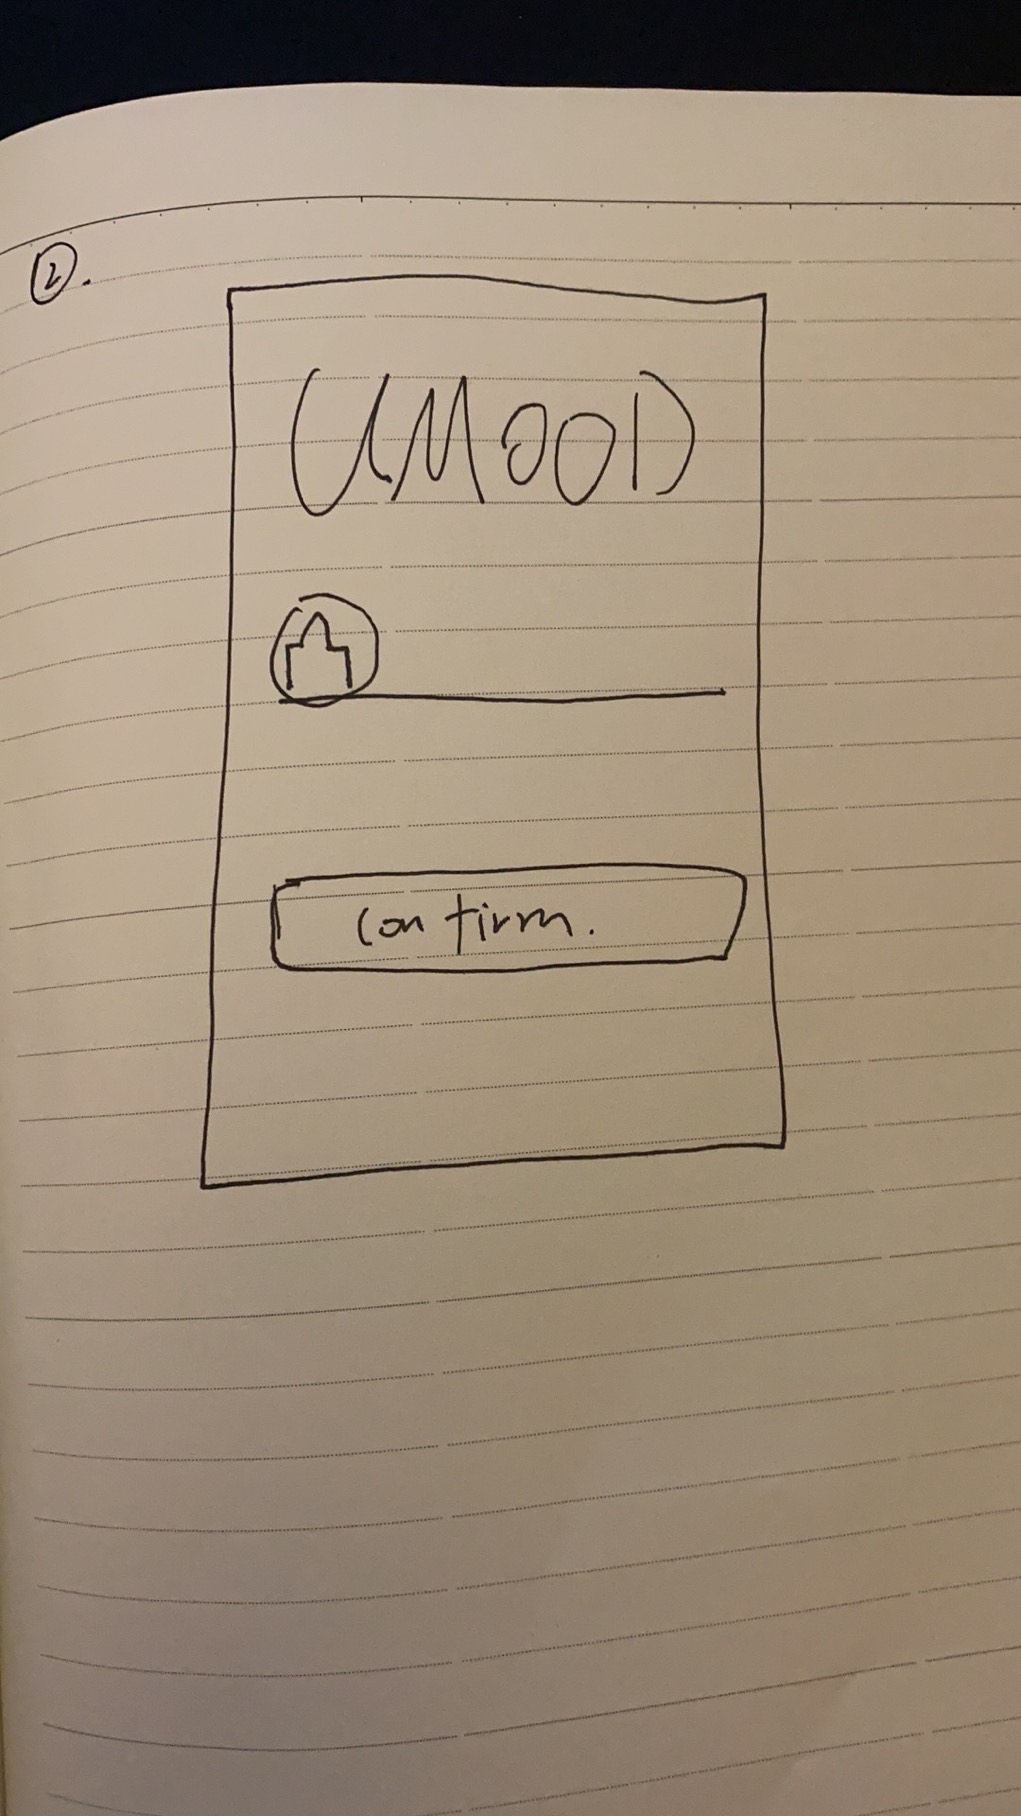 ②.
UMOOD
confirm.